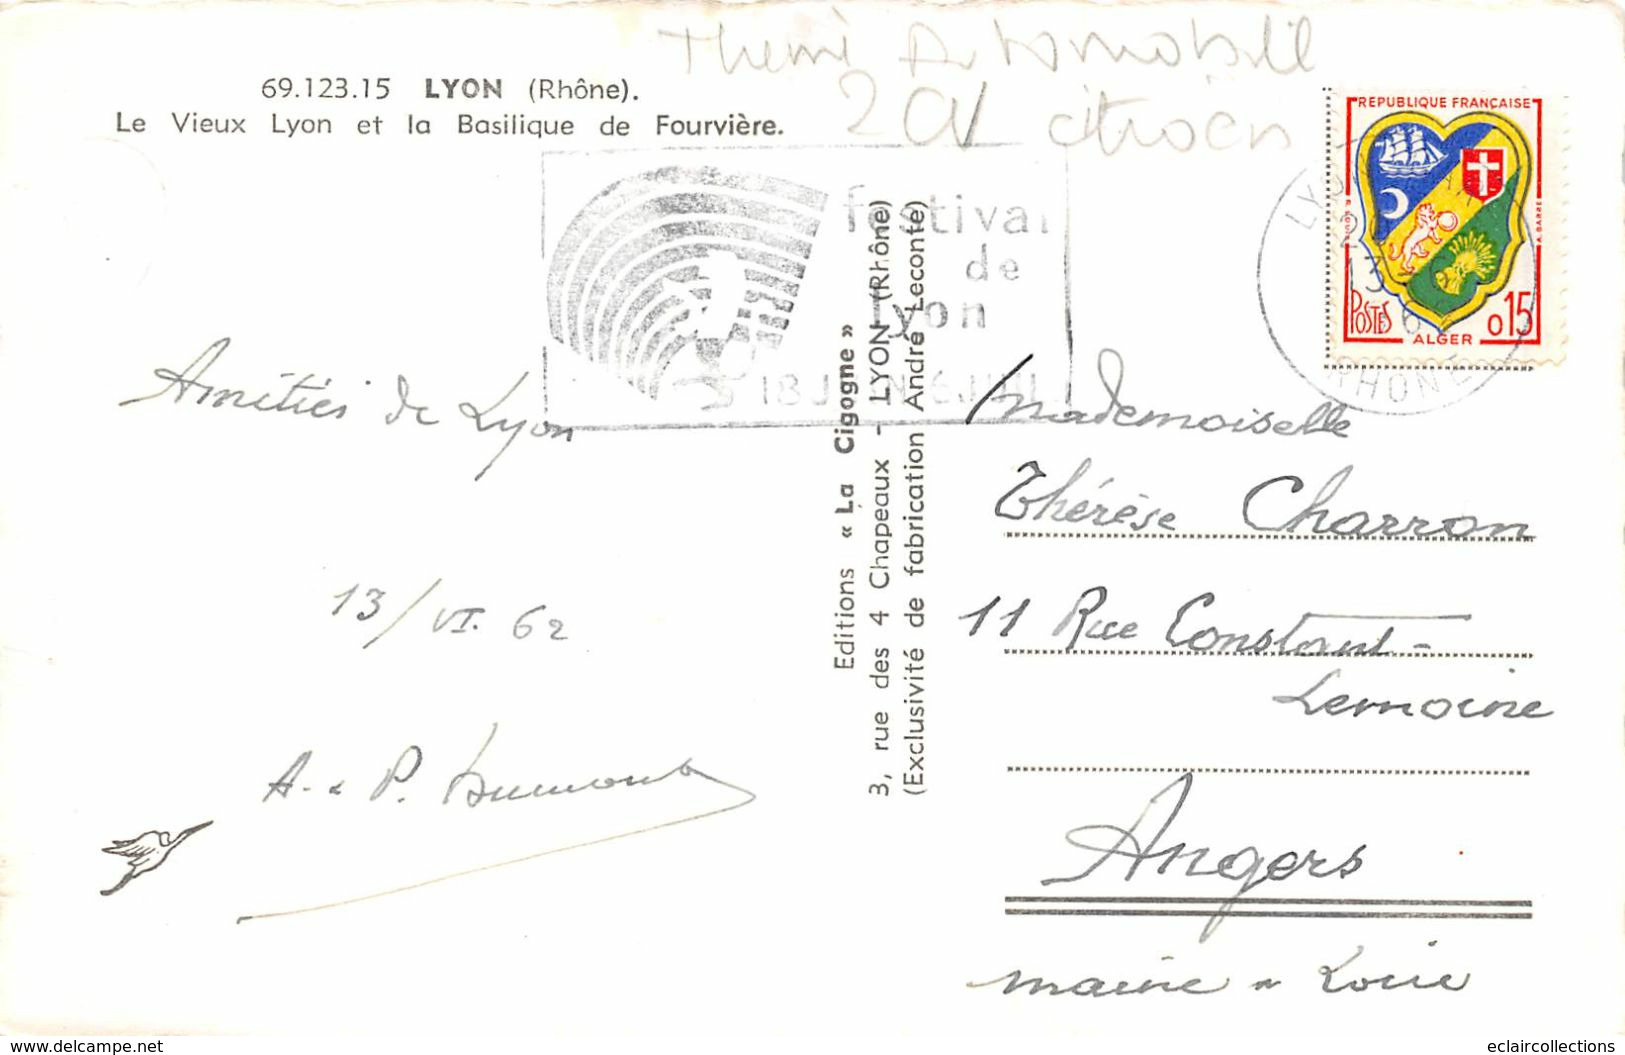 Theme Automobile
2 CV citroën
69.123.15 LYON (Rhône).
Le Vieux Lyon et la Basilique de Fourvière.
festival
de
lyon
18 JUIN 6 JUIL
REPUBLIQUE FRANÇAISE
POSTES 0,15
ALGER
LYON
13-6
RHONE
Amitiés de Lyon
13/VI. 62
A. & P. Dumont
Editions « La Cigogne »
3, rue des 4 Chapeaux - LYON (Rhône)
(Exclusivité de fabrication André Leconte)
Mademoiselle
Thérèse Charron
11 Rue Constant-
Lemoine
Angers
Maine & Loire
www.delcampe.net
eclaircollections